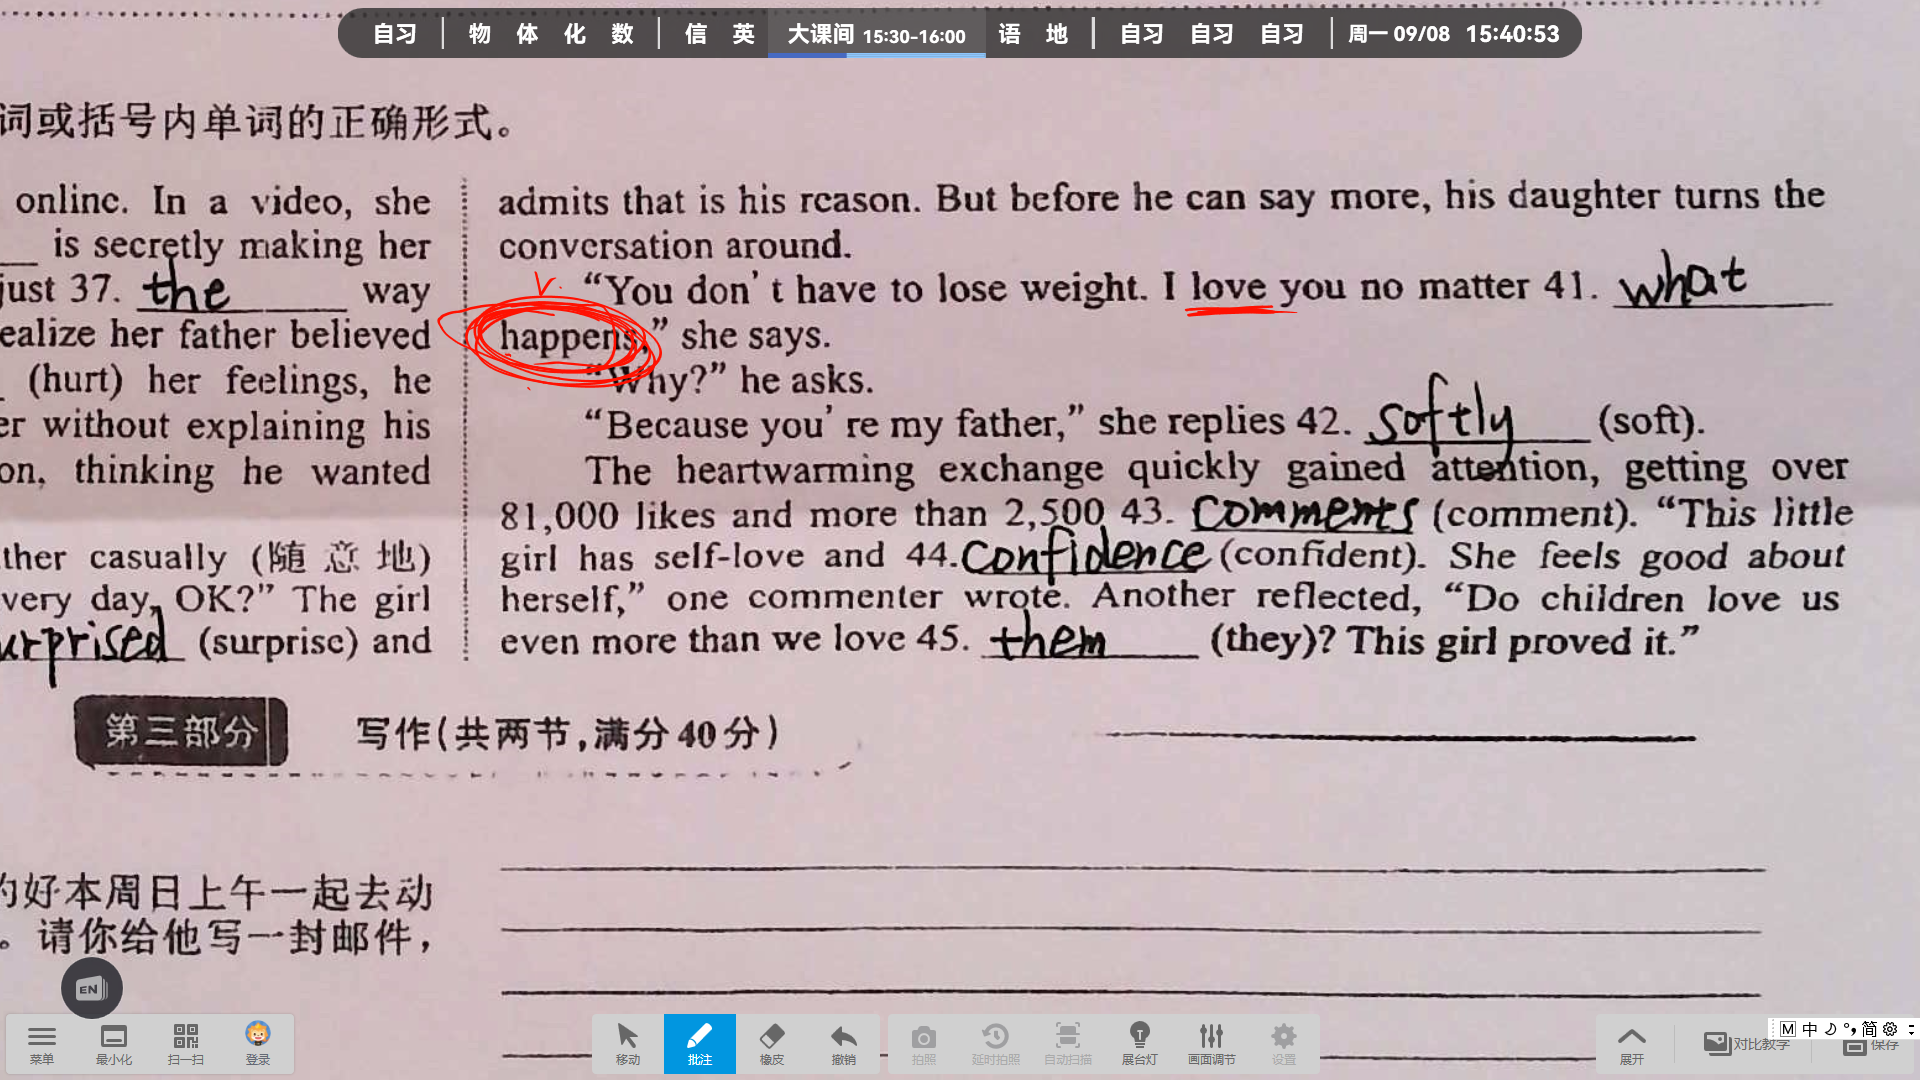 自习 物 体 化 数 信 英 大课间 15:30-16:00 语 地 自习 自习 自习 周一 09/08 15:40:53
词或括号内单词的正确形式。
online. In a video, she
is secretly making her
just 37. the way
ealize her father believed
(hurt) her feelings, he
er without explaining his
on, thinking he wanted
ther casually (随意地)
very day, OK?” The girl
urprised (surprise) and
admits that is his reason. But before he can say more, his daughter turns the
conversation around.
“You don’t have to lose weight. I love you no matter 41. what
happens,” she says.
“Why?” he asks.
“Because you’re my father,” she replies 42. softly (soft).
The heartwarming exchange quickly gained attention, getting over
81,000 likes and more than 2,500 43. comments (comment). “This little
girl has self-love and 44. confidence (confident). She feels good about
herself,” one commenter wrote. Another reflected, “Do children love us
even more than we love 45. them (they)? This girl proved it.”
第三部分 写作(共两节,满分40分)
的好本周日上午一起去动
。请你给他写一封邮件，
EN
菜单 最小化 扫一扫 登录 移动 批注 橡皮 撤销 拍照 延时拍照 自动扫描 展台灯 画面调节 设置 展开 对比教学 保存
M 中 简